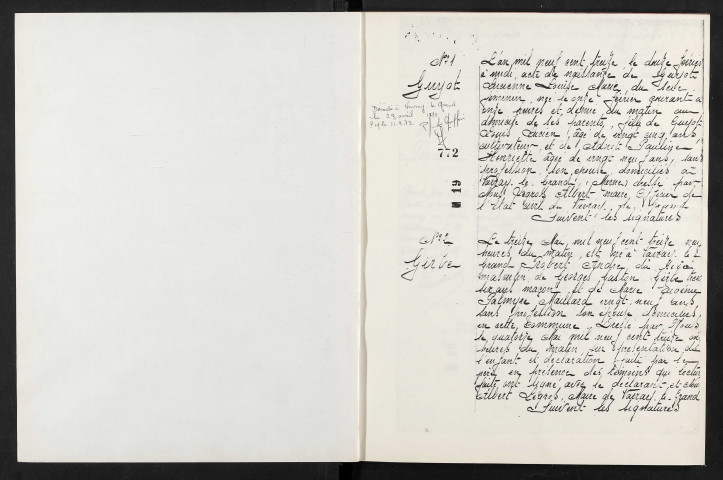 N° 1
Guyot
Décédée à Vavray le Grand
le 29 avril
772
M 19
L'an mil neuf cent treize le douze février
à midi, acte de naissance de Guyot
Lucienne Louise Marie, du sexe
féminin, née le onze février courant à
onze heures et demie du matin au
domicile de ses parents, fille de Guyot
Louis Lucien, âgé de vingt cinq ans,
cultivateur et de Adnet Pauline
Henriette âgée de vingt neuf ans, sans
profession, son épouse, domiciliés à
Vavray-le-Grand, (Marne) dressé par
Nous Legros Albert maire, Officier de
l'Etat Civil de Vavray-le-Grand
Suivent les signatures
N° 2
Girbe
Le treize Mai mil neuf cent treize
heures du matin est né à Vavray-le-
Grand Robert André du sexe
masculin de Georges Gaston Girbe trente
six ans maçon et de Marie Eugénie
Palmyre Maillard vingt-neuf ans,
sans profession son épouse domiciliés
en cette commune. Dressé par Nous
le quatorze Mai mil neuf cent treize
heures du matin, sur présentation de
l'enfant et déclaration faite par le
père en présence des témoins qui lecture
faite ont signé avec le déclarant et
Albert Legros, Maire de Vavray-le-Grand
Suivent les signatures